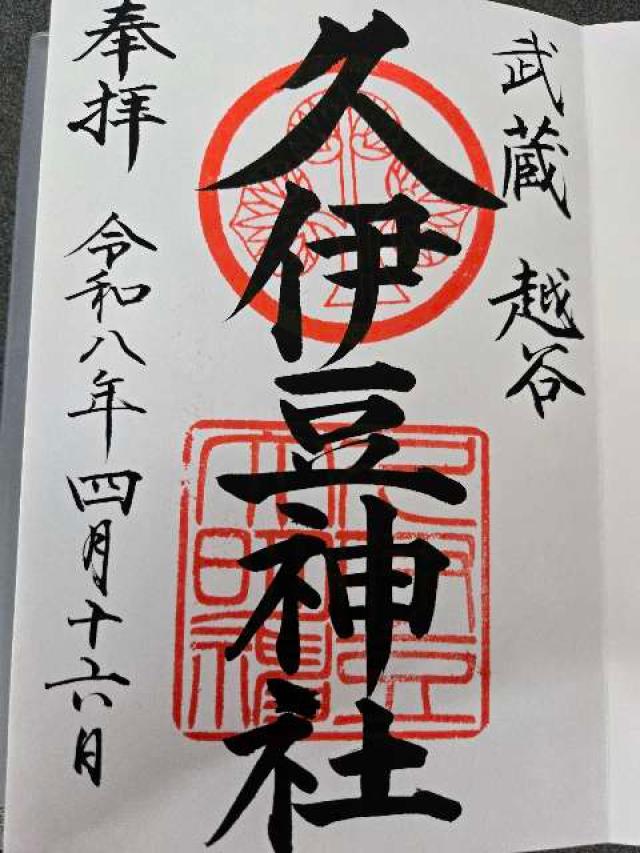 武蔵 越谷
久伊豆神社
奉拝 令和八年四月十六日